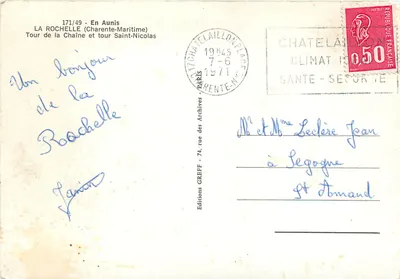 171/49 - En Aunis
LA ROCHELLE (Charente-Maritime)
Tour de la Chaîne et tour Saint-Nicolas
Un bonjour
de la
Rochelle
17 CHATELAILLON-PLAGE
19H45
7-6
1971
CHARENTE-MME
CHATELAI
CLIMAT
SANTE - SEC
0,50
Editions GREFF - 74, rue des Archives - PARIS
Mr et Mme Leclère Jean
à Segogne
St Amand